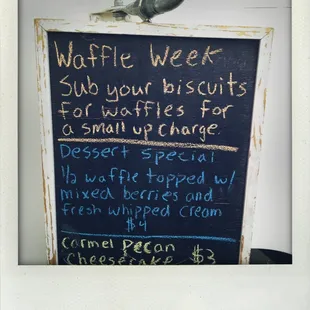 Waffle Week
Sub your biscuits
for waffles for
a small up charge.
Dessert special
1/2 waffle topped w/
mixed berries and
fresh whipped cream
$4
Carmel Pecan
Cheesecake $3